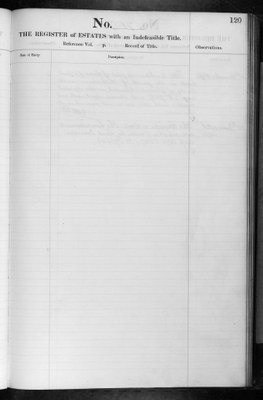 120
No.
THE REGISTER of ESTATES with an Indefeasible Title.
Reference Vol. p. Record of Title.
Observations.
Date of Entry.
Description.